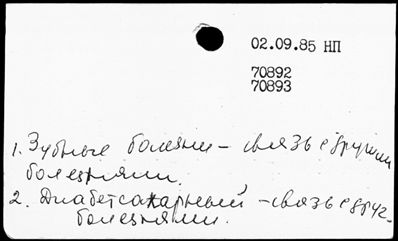 02.09.85 НП
70892
70893
1. Зубные болезни - связь с другими
болезнями.
2. Диабет сахарный - связь с друг.
болезнями.